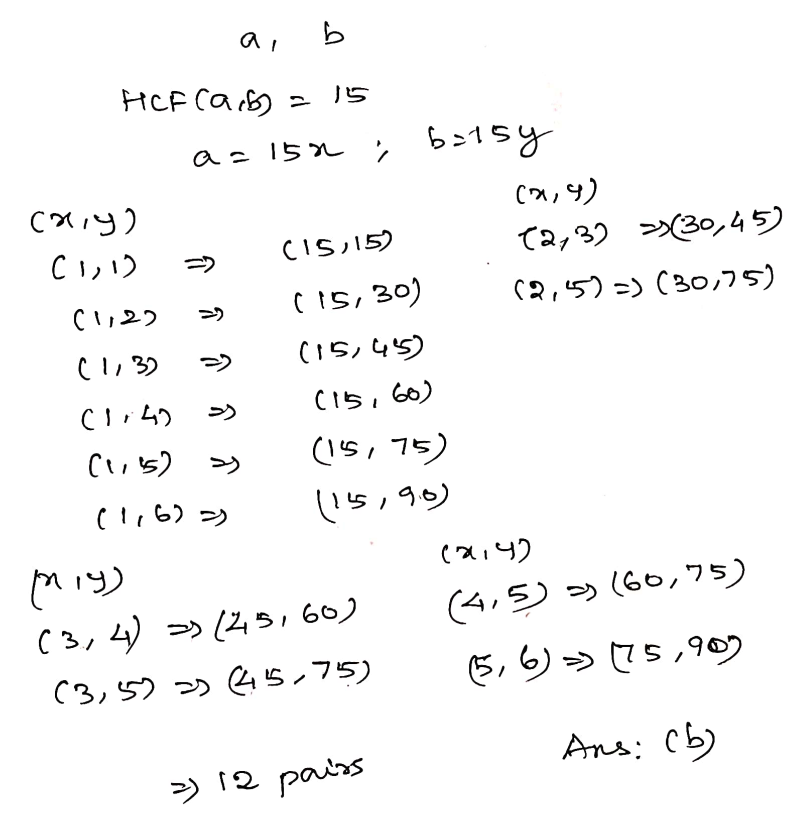 a, b
HCF(a,b) = 15
a = 15x ; b=15y
(x,y)
(1,1) ⇒ (15,15)
(1,2) ⇒ (15,30)
(1,3) ⇒ (15,45)
(1,4) ⇒ (15,60)
(1,5) ⇒ (15,75)
(1,6) ⇒ (15,90)
(x,y)
(2,3) ⇒(30,45)
(2,5) ⇒ (30,75)
(x,y)
(3,4) ⇒ (45,60)
(3,5) ⇒ (45,75)
(x,y)
(4,5) ⇒ (60,75)
(5,6) ⇒ (75,90)
⇒ 12 pairs
Ans: (b)